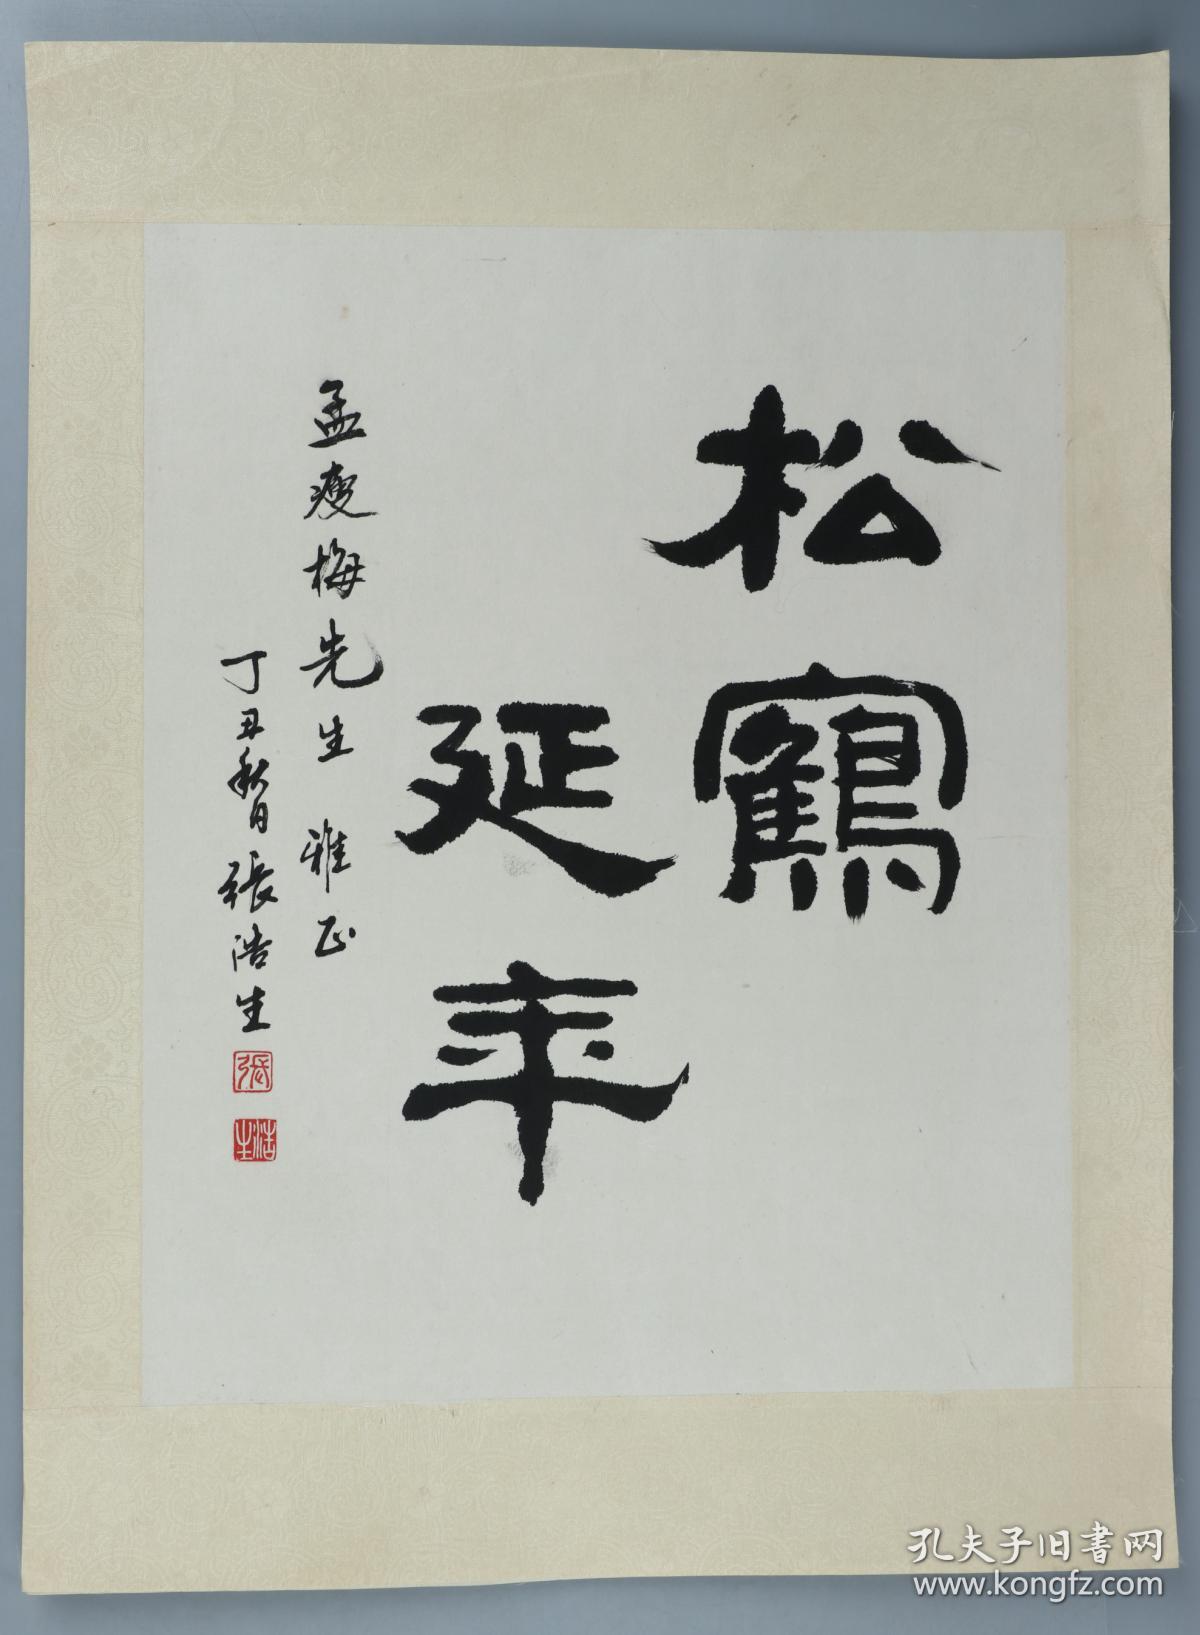 松鶴
延年
孟瘦梅先生 雅正
丁丑秋月 張浩生
張
浩生
孔夫子旧書网
www.kongfz.com